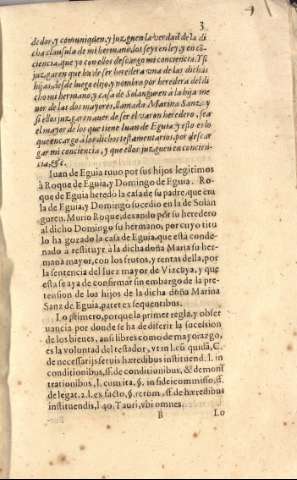 3
dedor, y comuniquen, y juzguen la verdad de la di
cha clausula de mi hermano, los seys en ley, y en cõ
ciencia, que yo con ellos descargo mi conciencia. Y si
juzgaren que ha de ser heredera vna de las dichas
hijas, desde luego elijo, y nombro por heredera del di
cho mi hermano, y casa de Solanguren a la hija me
nor de las dos mayores, llamada Marina Sanz: y
si ellos juzgaren auer de ser el varon heredero, sea
el mayor de los que tiene Iuan de Eguia: y esto es lo
que encargo a los dichos testamentarios, por descar
gar mi conciencia, y que ellos juzguen en concien-
cia, &c.
Iuan de Eguia tuuo por sus hijos legitimos
à Roque de Eguia, y Domingo de Eguia. Ro-
que de Eguia heredò la casa de su padre, que era
la de Eguia, y Domingo sucedio en la de Solan
guren. Murio Roque, dexando por su heredero
al dicho Domingo su hermano, por cuyo titu
lo ha gozado la casa de Eguia, que està conde
nado a restituyr a la dicha doña Maria su her-
mana mayor, con los frutos, y rentas della, por
la sentencia del Iuez mayor de Vizcaya, y que
esta se aya de confirmar sin embargo de la pre-
tension de los hijos de la dicha doña Marina
Sanz de Eguia, patet ex sequentibus.
Lo primero, porque la primer regla, y obser
uancia por donde se ha de diferir la sucession
de los bienes, aun libres como de mayorazgo,
es la voluntad del testador, vt in l. cũ quidã, C.
de necessarijs seruis hæredibus instituend. l. in
conditionibus, ff. de conditionibus, & demonst
trationibus, l. cum ita, §. in fideicommisso, ff.
de legat. 2. l. ex facto, §. rerum, ff. de hæredibus
instituendis, l. 40. Tauri, vbi omnes.
B Lo